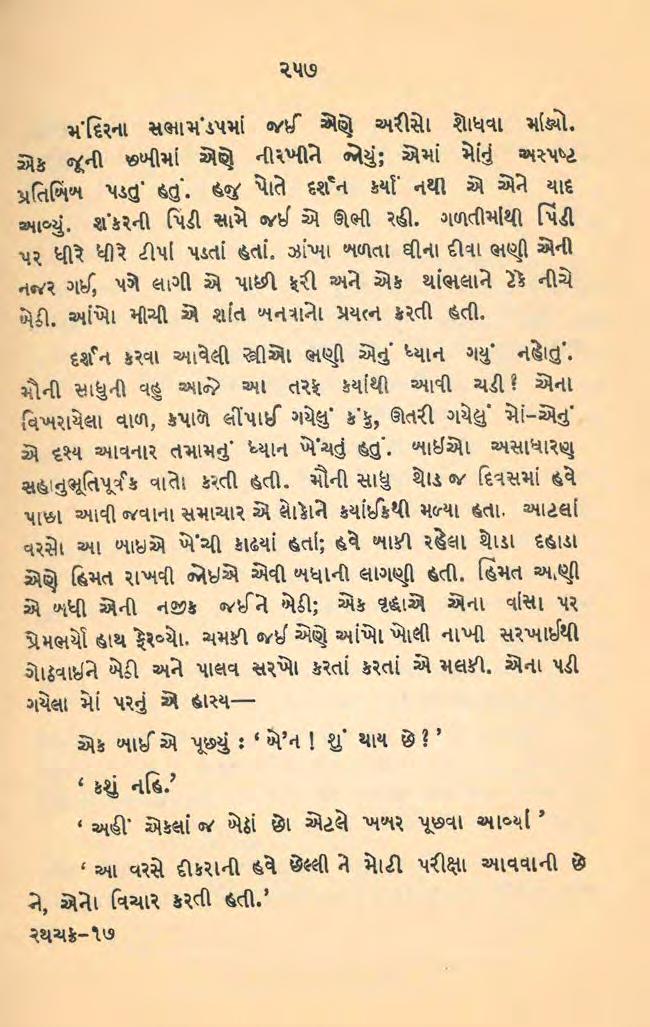 ૨૫૭
મંદિરના સભામંડપમાં જઈ એણે અરીસો શોધવા માંડ્યો.
એક જૂની છબીમાં એણે નીરખીને જોયું; એમાં મોંનું અસ્પષ્ટ
પ્રતિબિંબ પડતું હતું. હજુ પોતે દર્શન કર્યાં નથી એ એને યાદ
આવ્યું. શંકરની પિંડી સામે જઈ એ ઊભી રહી. ગળતીમાંથી પિંડી
પર ધીરે ધીરે ટીપાં પડતાં હતાં. ઝાંખા બળતા ઘીના દીવા ભણી એની
નજર ગઈ, પગે લાગી એ પાછી ફરી અને એક થાંભલાને ટેકે નીચે
બેઠી. આંખો મીચી એ શાંત બનવાનો પ્રયત્ન કરતી હતી.
દર્શન કરવા આવેલી સ્ત્રીઓ ભણી એનું ધ્યાન ગયું નહોતું.
મૌની સાધુની વહુ આજે આ તરફ કયાંથી આવી ચડી? એના
વિખરાયેલા વાળ, કપાળે લીંપાઈ ગયેલું કંકુ, ઊતરી ગયેલું મોં–એનું
એ દૃશ્ય આવનાર તમામનું ધ્યાન ખેંચતું હતું. બાઈઓ અસાધારણ
સહાનુભૂતિપૂર્વક વાતો કરતી હતી. મૌની સાધુ થોડા જ દિવસમાં હવે
પાછા આવી જવાના સમાચાર એ લોકોને કયાંઈકથી મળ્યા હતા. આટલાં
વરસો આ બાઇએ ખેંચી કાઢયાં હતાં; હવે બાકી રહેલા થોડા દહાડા
એણે હિંમત રાખવી જોઇએ એવી બધાની લાગણી હતી. હિંમત આણી
એ બધી એની નજીક જઈને બેઠી; એક વૃદ્ધાએ એના વાંસા પર
પ્રેમભર્યો હાથ ફેરવ્યો. ચમકી જઈ એણે આંખો ખોલી નાખી સરખાઈથી
ગોઠવાઇને બેઠી અને પાલવ સરખો કરતાં કરતાં એ મલકી. એના પડી
ગયેલા મોં પરનું એ હાસ્ય—
એક બાઈ એ પૂછયું : ‘બે’ન ! શું થાય છે?’
‘ કશું નહિ.’
‘ અહીં એકલાં જ બેઠાં છો એટલે ખબર પૂછવા આવ્યાં ’
‘ આ વરસે દીકરાની હવે છેલ્લી ને મોટી પરીક્ષા આવવાની છે
ને, એનો વિચાર કરતી હતી.’
રથચક્ર–૧૭